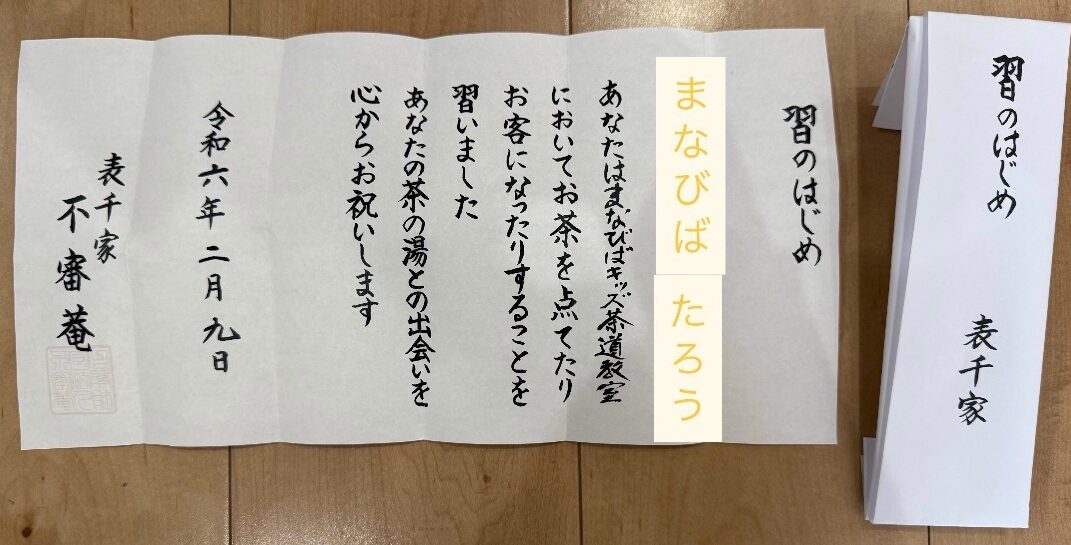 習のはじめ
表千家
習のはじめ
まなびば たろう
あなたはまなびばキッズ茶道教室
においてお茶を点てたり
お客になったりすることを
習いました
あなたの茶の湯との出会いを
心からお祝いします
令和六年二月九日
表千家
不審菴